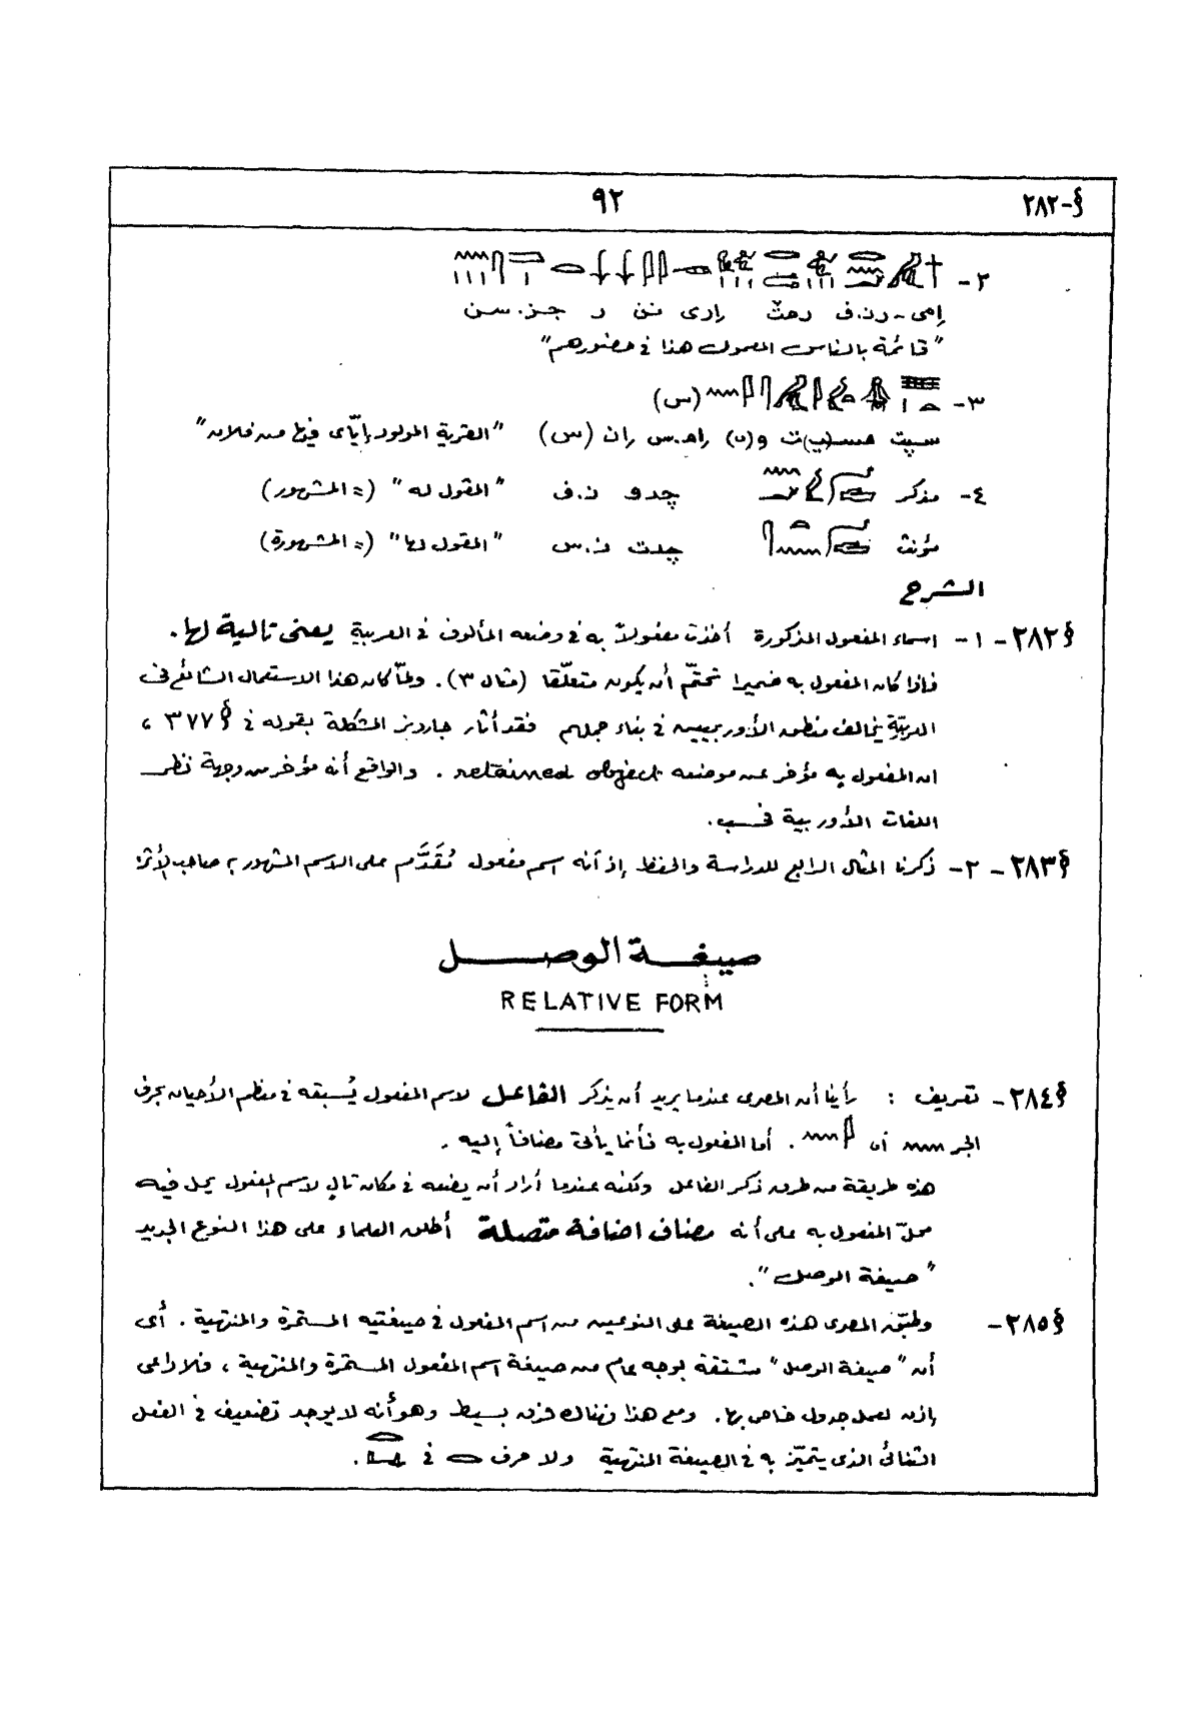 §-٢٨٢
٩٢
٢-
إمى - رن.ف رمث إرى نن ر جز. سن
"قائمة بالناس المعمول هذا فى حضورهم"
٣- (س)
سپت مس(ى)ت و(ى) إم.س إن (س) "القرية المولود إيّاى فيها من فلان"
٤- مذكر چدو ن.ف "المقول له" (= المشهور)
مؤنث چدت ن.س "المقول لها" (= المشهورة)
الشرح
§٢٨٢- ١- اسماء المفعول المذكورة أخذت مفعولاً به فى وضعه المألوف فى العربية يعنى تالية لها.
فإذا كان المفعول به ضميرا تحتّم أن يكون متعلّقا (مثال ٣). ولمّا كان هذا الاستعمال الشائع فى
العربيّة يخالف منطق الأوربيين فى بناء جملهم فقد أثار جاردنر المشكلة بقوله فى §٣٧٧،
ان المفعول به مؤخر عن موضعه retained object. والواقع أنه مؤخر من وجهة نظر
اللغات الأوربية فحسب.
§٢٨٣- ٢- ذكرنا المثال الرابع للدراسة والحفظ إذ أنه اسم مفعول مُقَدَّم على الاسم المشهور به صاحب الأثر
صيغة الوصل
RELATIVE FORM
§٢٨٤- تعريف : رأينا أن المصرى عندما يريد أن يذكر الفاعل لاسم المفعول يُسبقه فى معظم الأحيان بحرف
الجر أو . أما المفعول به فأنما يأتى مضافاً إليه.
هذه طريقة من طرق ذكر الفاعل ولكنه عندما أراد أن يضعه فى مكان تالٍ لاسم المفعول يحل فيه
محلّ المفعول به على أنه مضاف اضافة متصلة أطلق العلماء على هذا النوع الجديد
"صيغة الوصل".
§٢٨٥- وطبّق المصرى هذه الصيغة على النوعين من اسم المفعول فى صيغتيه المستمرة والمنتهية. أى
أن "صيغة الوصل" مشتقة بوجه عام من صيغة اسم المفعول المستمرة والمنتهية، فلا داعى
إذن لعمل جدول خاص بها. ومع هذا فهناك فرق بسيط وهو أنه لا يوجد تضعيف فى الفعل
الثنائى الذى يتميّز به فى الصيغة المنتهية ولا حرف فى .